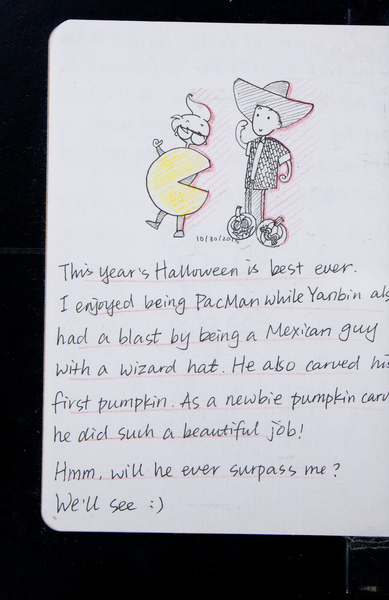 10/30/201
This year's Halloween is best ever.
I enjoyed being PacMan while Yanbin als
had a blast by being a Mexican guy
with a wizard hat. He also carved his
first pumpkin. As a newbie pumpkin carv
he did such a beautiful job!
Hmm, will he ever surpass me?
We'll see :)